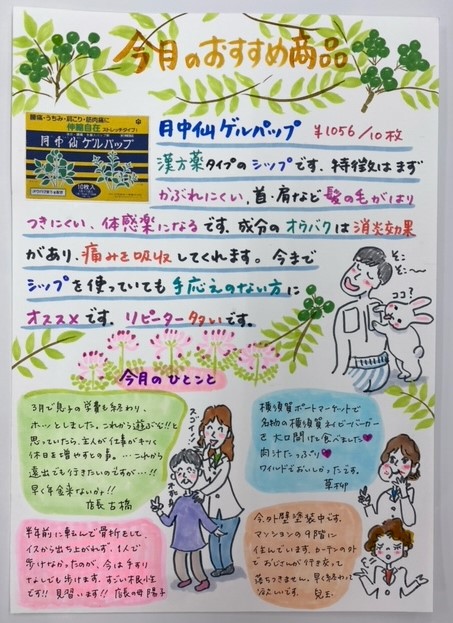 今月のおすすめ商品
腰痛・うちみ・肩こり・筋肉痛に
伸縮自在 ストレッチタイプ!
月中仙ゲルパップ
10枚入
月中仙ゲルパップ ¥1056/10枚
漢方薬タイプのシップです。特徴はまず
かぶれにくい、首・肩など髪の毛がはり
つきにくい、体感楽になるです。成分のオウバクは消炎効果
があり、痛みを吸収してくれます。今まで
シップを使っていても手応えのない方に
オススメです。リピーター多いです。
そ〜
そ〜
ココ?
今月のひとこと
3月で息子の学費も終わり、
ホッとしました。これから遊ぶぞ!!と
思っていたら、主人が仕事がキツく
休日を増やすとの事。…これから
遠出でも行きたいのですが…!!
早く年金来ないかな!!
店長 古橋
スゴーイ!
横須賀ポートマーケットで
名物の横須賀ネイビーバーガー
を大口開けて食べました
肉汁たっぷり
ワイルドでおいしかったです。
草柳
半年前に転んで骨折をして、
イスから立ち上がれず、1人で
歩けなかったのが、今は手すり
なしでも歩けます。すごい根性
です!!見習います!!店長の母 陽子
今、外壁塗装中です。
マンションの9階に
住んでいます。カーテンの外
でおじさんが行き交って
落ちつきません。早く終わって
欲しいです。 児玉